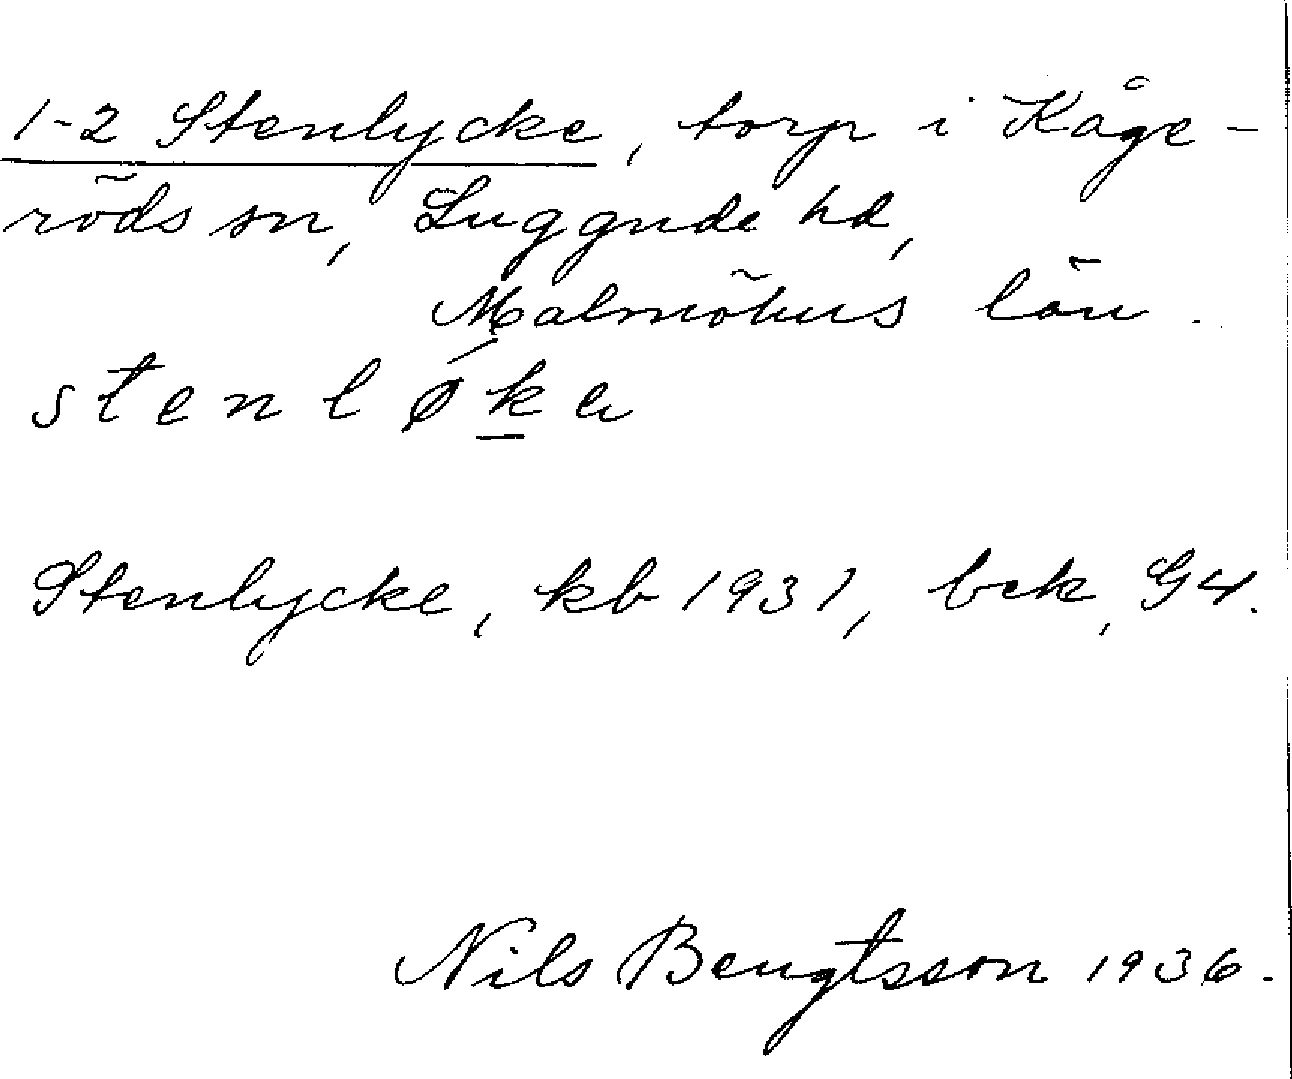 1-2 Stenlycke, torp i Kåge-
röds sn, Luggude hd,
Malmöhus län.
stenlǿk̲a
Stenlycke, kb 1931, bek, G4.
Nils Bengtsson 1936.